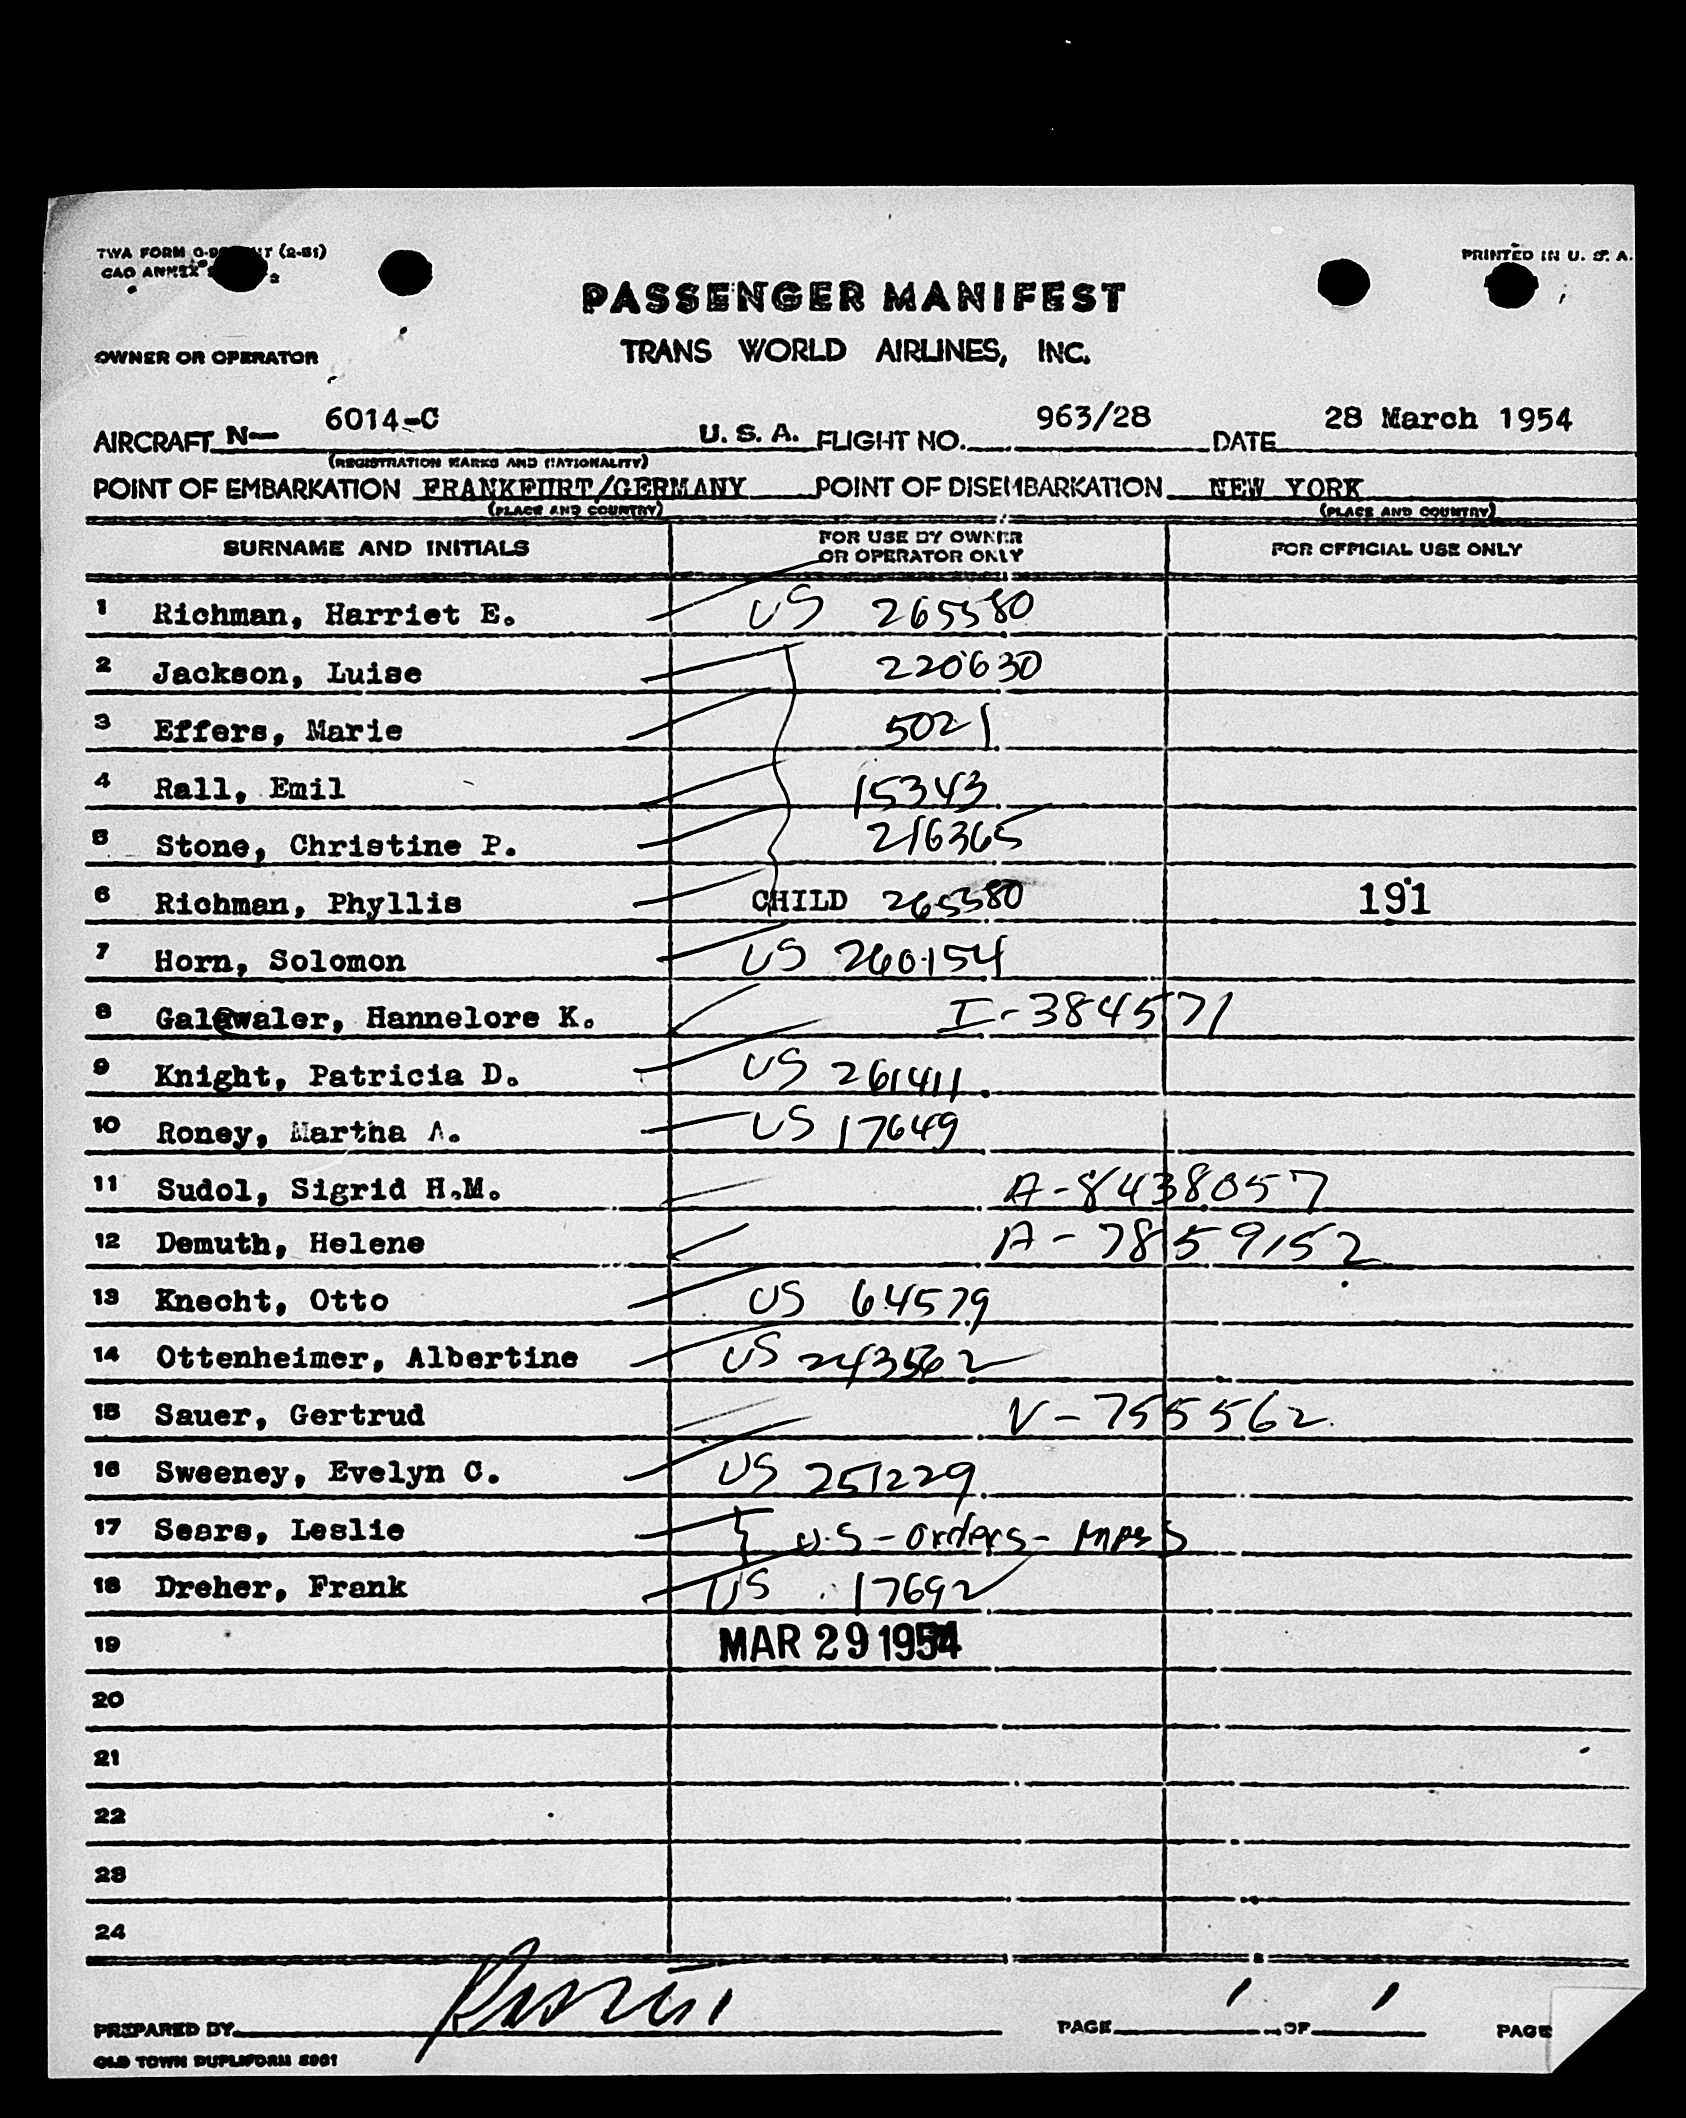 TWA FORM (2-51) PRINTED IN U. S. A.
CAO ANNEX 2
PASSENGER MANIFEST
OWNER OR OPERATOR TRANS WORLD AIRLINES, INC.
AIRCRAFT N— 6014-C U. S. A. FLIGHT NO. 963/28 DATE 28 March 1954
(REGISTRATION MARKS AND NATIONALITY)
POINT OF EMBARKATION FRANKFURT/GERMANY POINT OF DISEMBARKATION NEW YORK
(PLACE AND COUNTRY) (PLACE AND COUNTRY)
SURNAME AND INITIALS FOR USE BY OWNER OR OPERATOR ONLY FOR OFFICIAL USE ONLY
1 Richman, Harriet E. US 265580
2 Jackson, Luise 220630
3 Effers, Marie 5021
4 Rall, Emil 15343
5 Stone, Christine P. 216365
6 Richman, Phyllis CHILD 265580 191
7 Horn, Solomon US 260154
8 Hannelore K. I-384571
9 Knight, Patricia D. US 261411
10 Roney, Martha A. US 17649
11 Sudol, Sigrid H.M. A-8438057
12 Demuth, Helene A-7859152
13 Knecht, Otto US 64579
14 Ottenheimer, Albertine US 243562
15 Sauer, Gertrud V-755562
16 Sweeney, Evelyn C. US 251229
17 Sears, Leslie U.S - orders -
18 Dreher, Frank US 17692
19 MAR 29 1954
20
21
22
23
24
PREPARED BY PAGE 1 OF 1 PAGE
OLD TOWN DUPLIFORM 5001